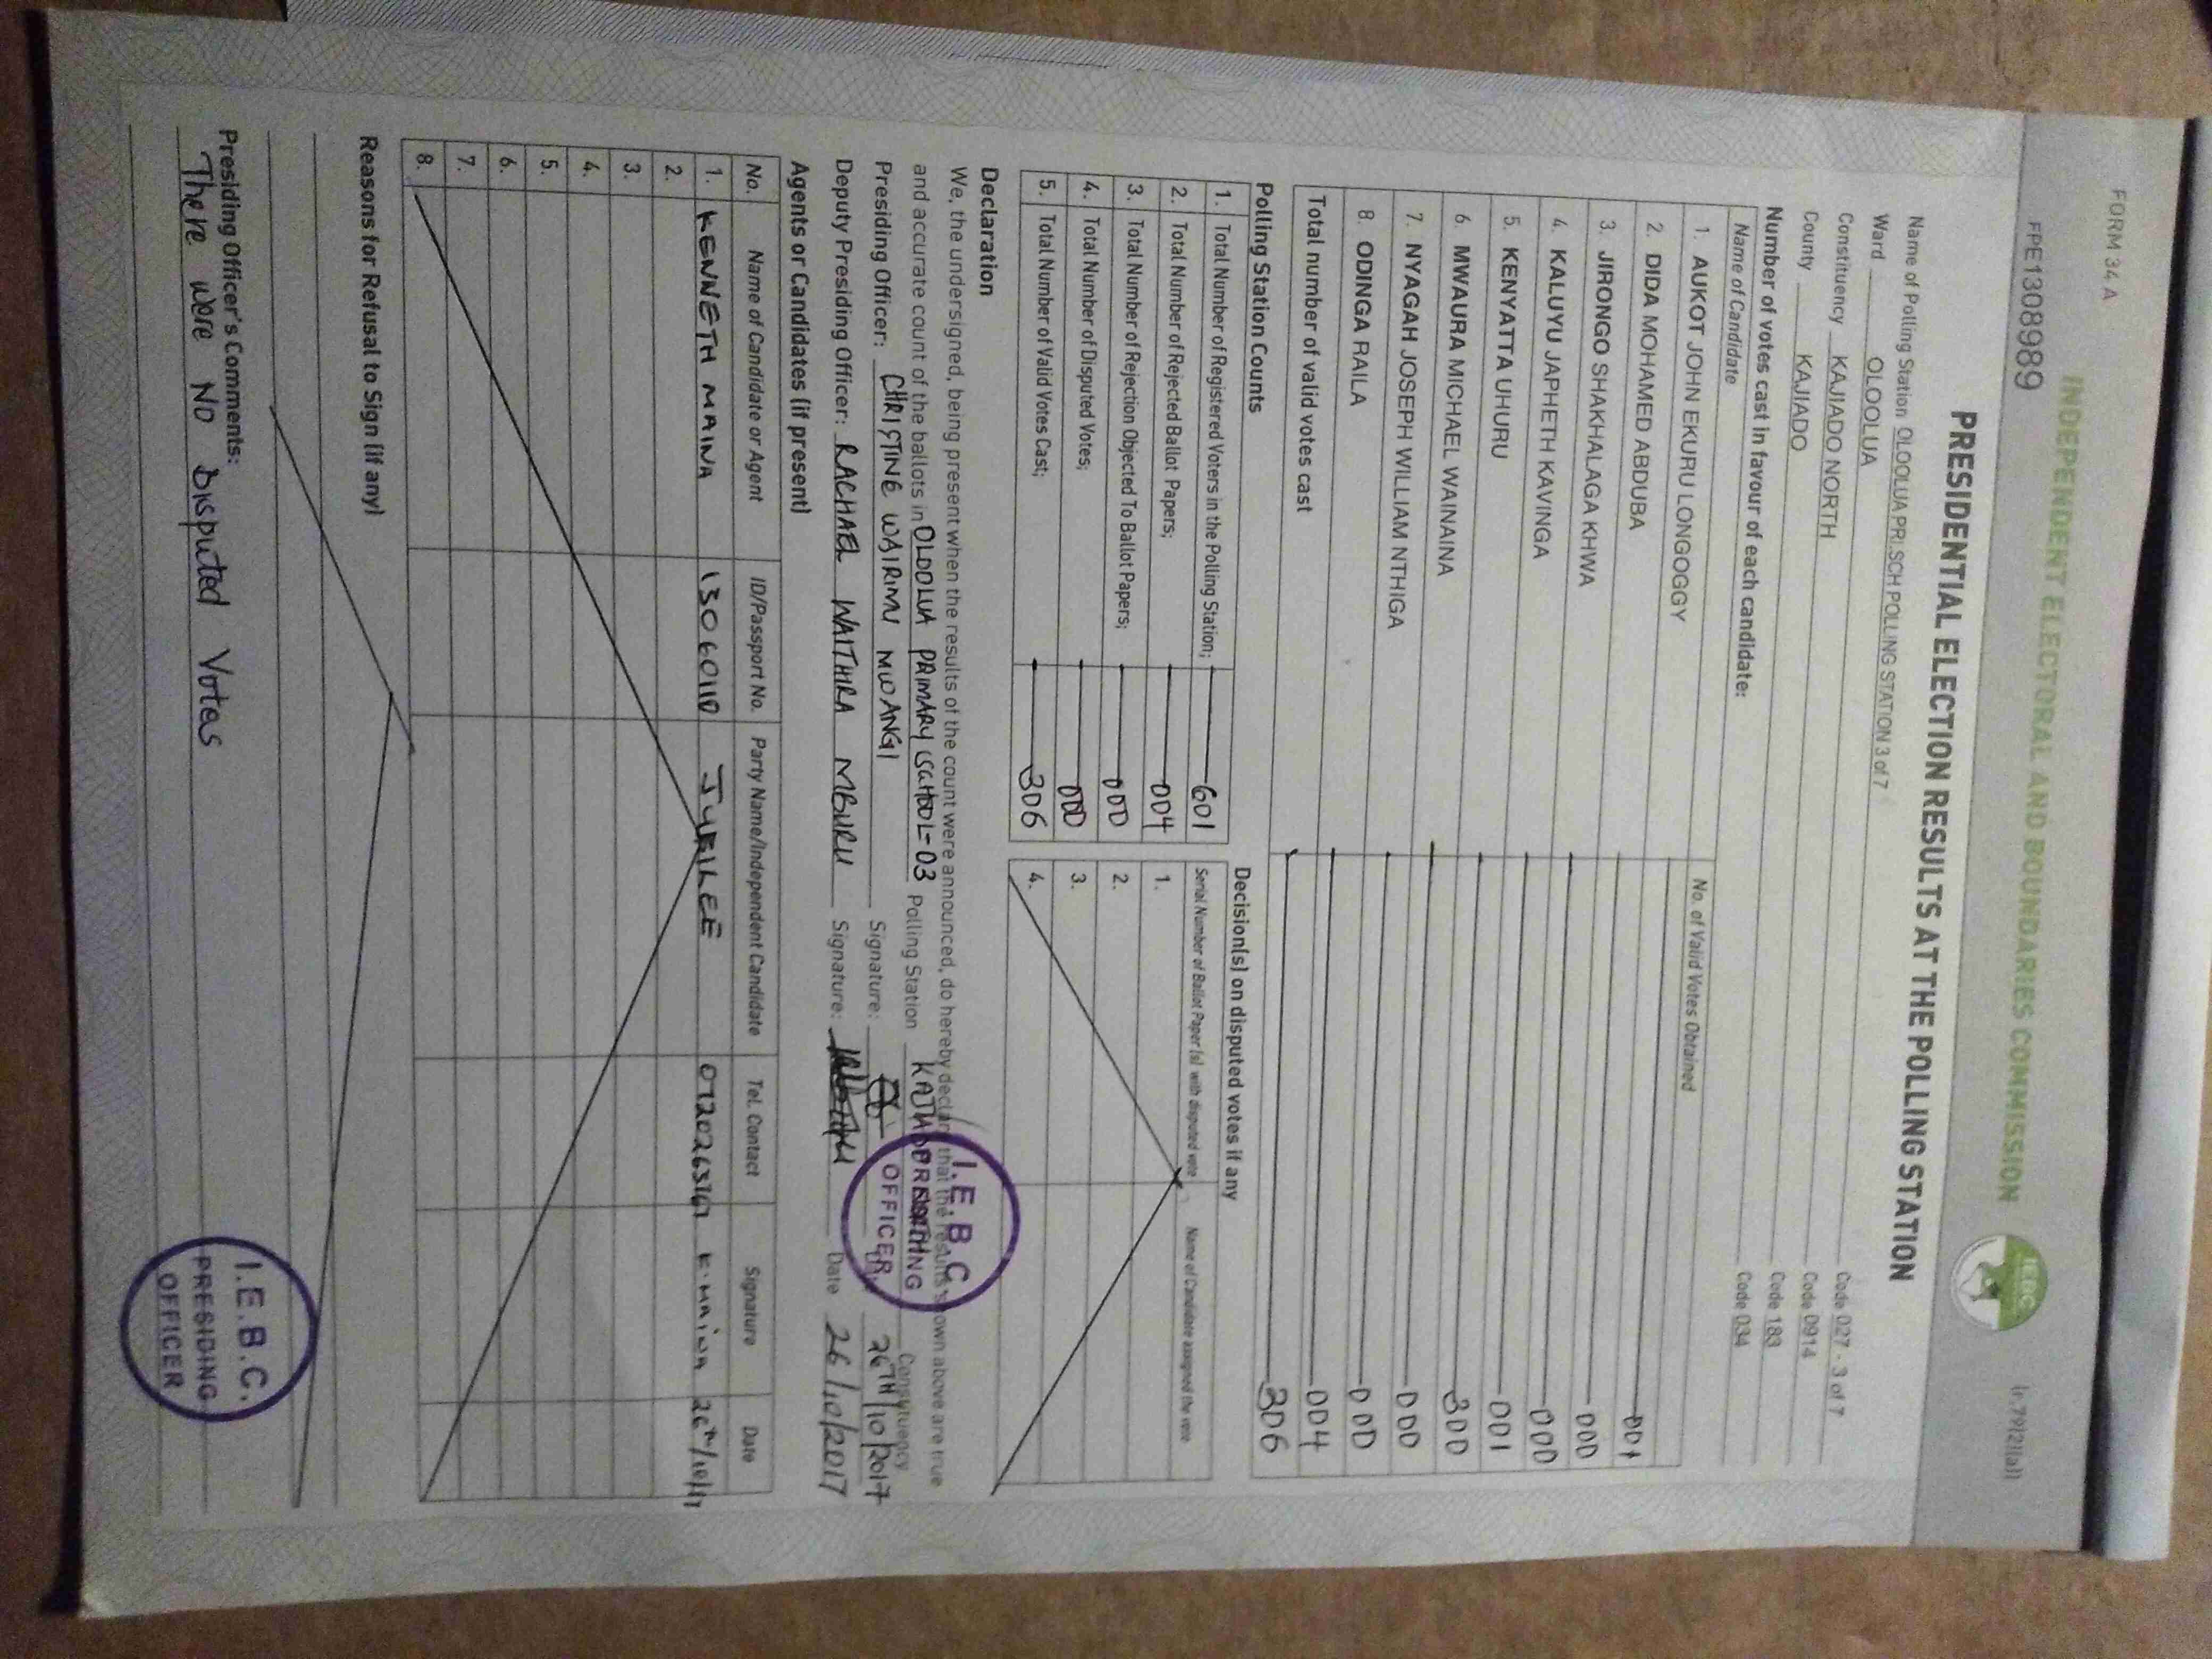 FORM 34 A
(r.79(2)(a))
FPE1308989
INDEPENDENT ELECTORAL AND BOUNDARIES COMMISSION
IEBC
PRESIDENTIAL ELECTION RESULTS AT THE POLLING STATION
Name of Polling Station OLOOLUA PRI.SCH POLLING STATION 3 of 7 Code 027 - 3 of 7
Ward OLOOLUA Code 0914
Constituency KAJIADO NORTH Code 183
County KAJIADO Code 034
Number of votes cast in favour of each candidate:
Name of Candidate No. of Valid Votes Obtained
1. AUKOT JOHN EKURU LONGOGGY 001
2. DIDA MOHAMED ABDUBA 000
3. JIRONGO SHAKHALAGA KHWA 000
4. KALUYU JAPHETH KAVINGA 001
5. KENYATTA UHURU 300
6. MWAURA MICHAEL WAINAINA 000
7. NYAGAH JOSEPH WILLIAM NTHIGA 000
8. ODINGA RAILA 004
Total number of valid votes cast 306
Polling Station Counts
1. Total Number of Registered Voters in the Polling Station; 601
2. Total Number of Rejected Ballot Papers; 004
3. Total Number of Rejection Objected To Ballot Papers; 000
4. Total Number of Disputed Votes; 000
5. Total Number of Valid Votes Cast; 306
Decision(s) on disputed votes if any
Serial Number of Ballot Paper(s) with disputed vote Name of Candidate assigned the vote
1.
2.
3.
4.
Declaration
We, the undersigned, being present when the results of the count were announced, do hereby declare that the results shown above are true
and accurate count of the ballots in OLOOLUA PRIMARY SCHOOL-03 Polling Station KAJIADO NORTH Constituency
Presiding Officer: CHRISTINE WAIRIMU MWANGI Signature: Date 26TH/10/2017
Deputy Presiding Officer: RACHAEL WAITHRA MBURU Signature: Date 26/10/2017
I.E.B.C.
PRESIDING
OFFICER
Agents or Candidates (if present)
No. Name of Candidate or Agent ID/Passport No. Party Name/Independent Candidate Tel. Contact Signature Date
1. KENNETH MAINA 13060110 JUBILEE K.Maina 26th/10/17
2.
3.
4.
5.
6.
7.
8.
Reasons for Refusal to Sign (if any)
Presiding Officer's Comments:
There were NO Disputed Votes
I.E.B.C.
PRESIDING
OFFICER